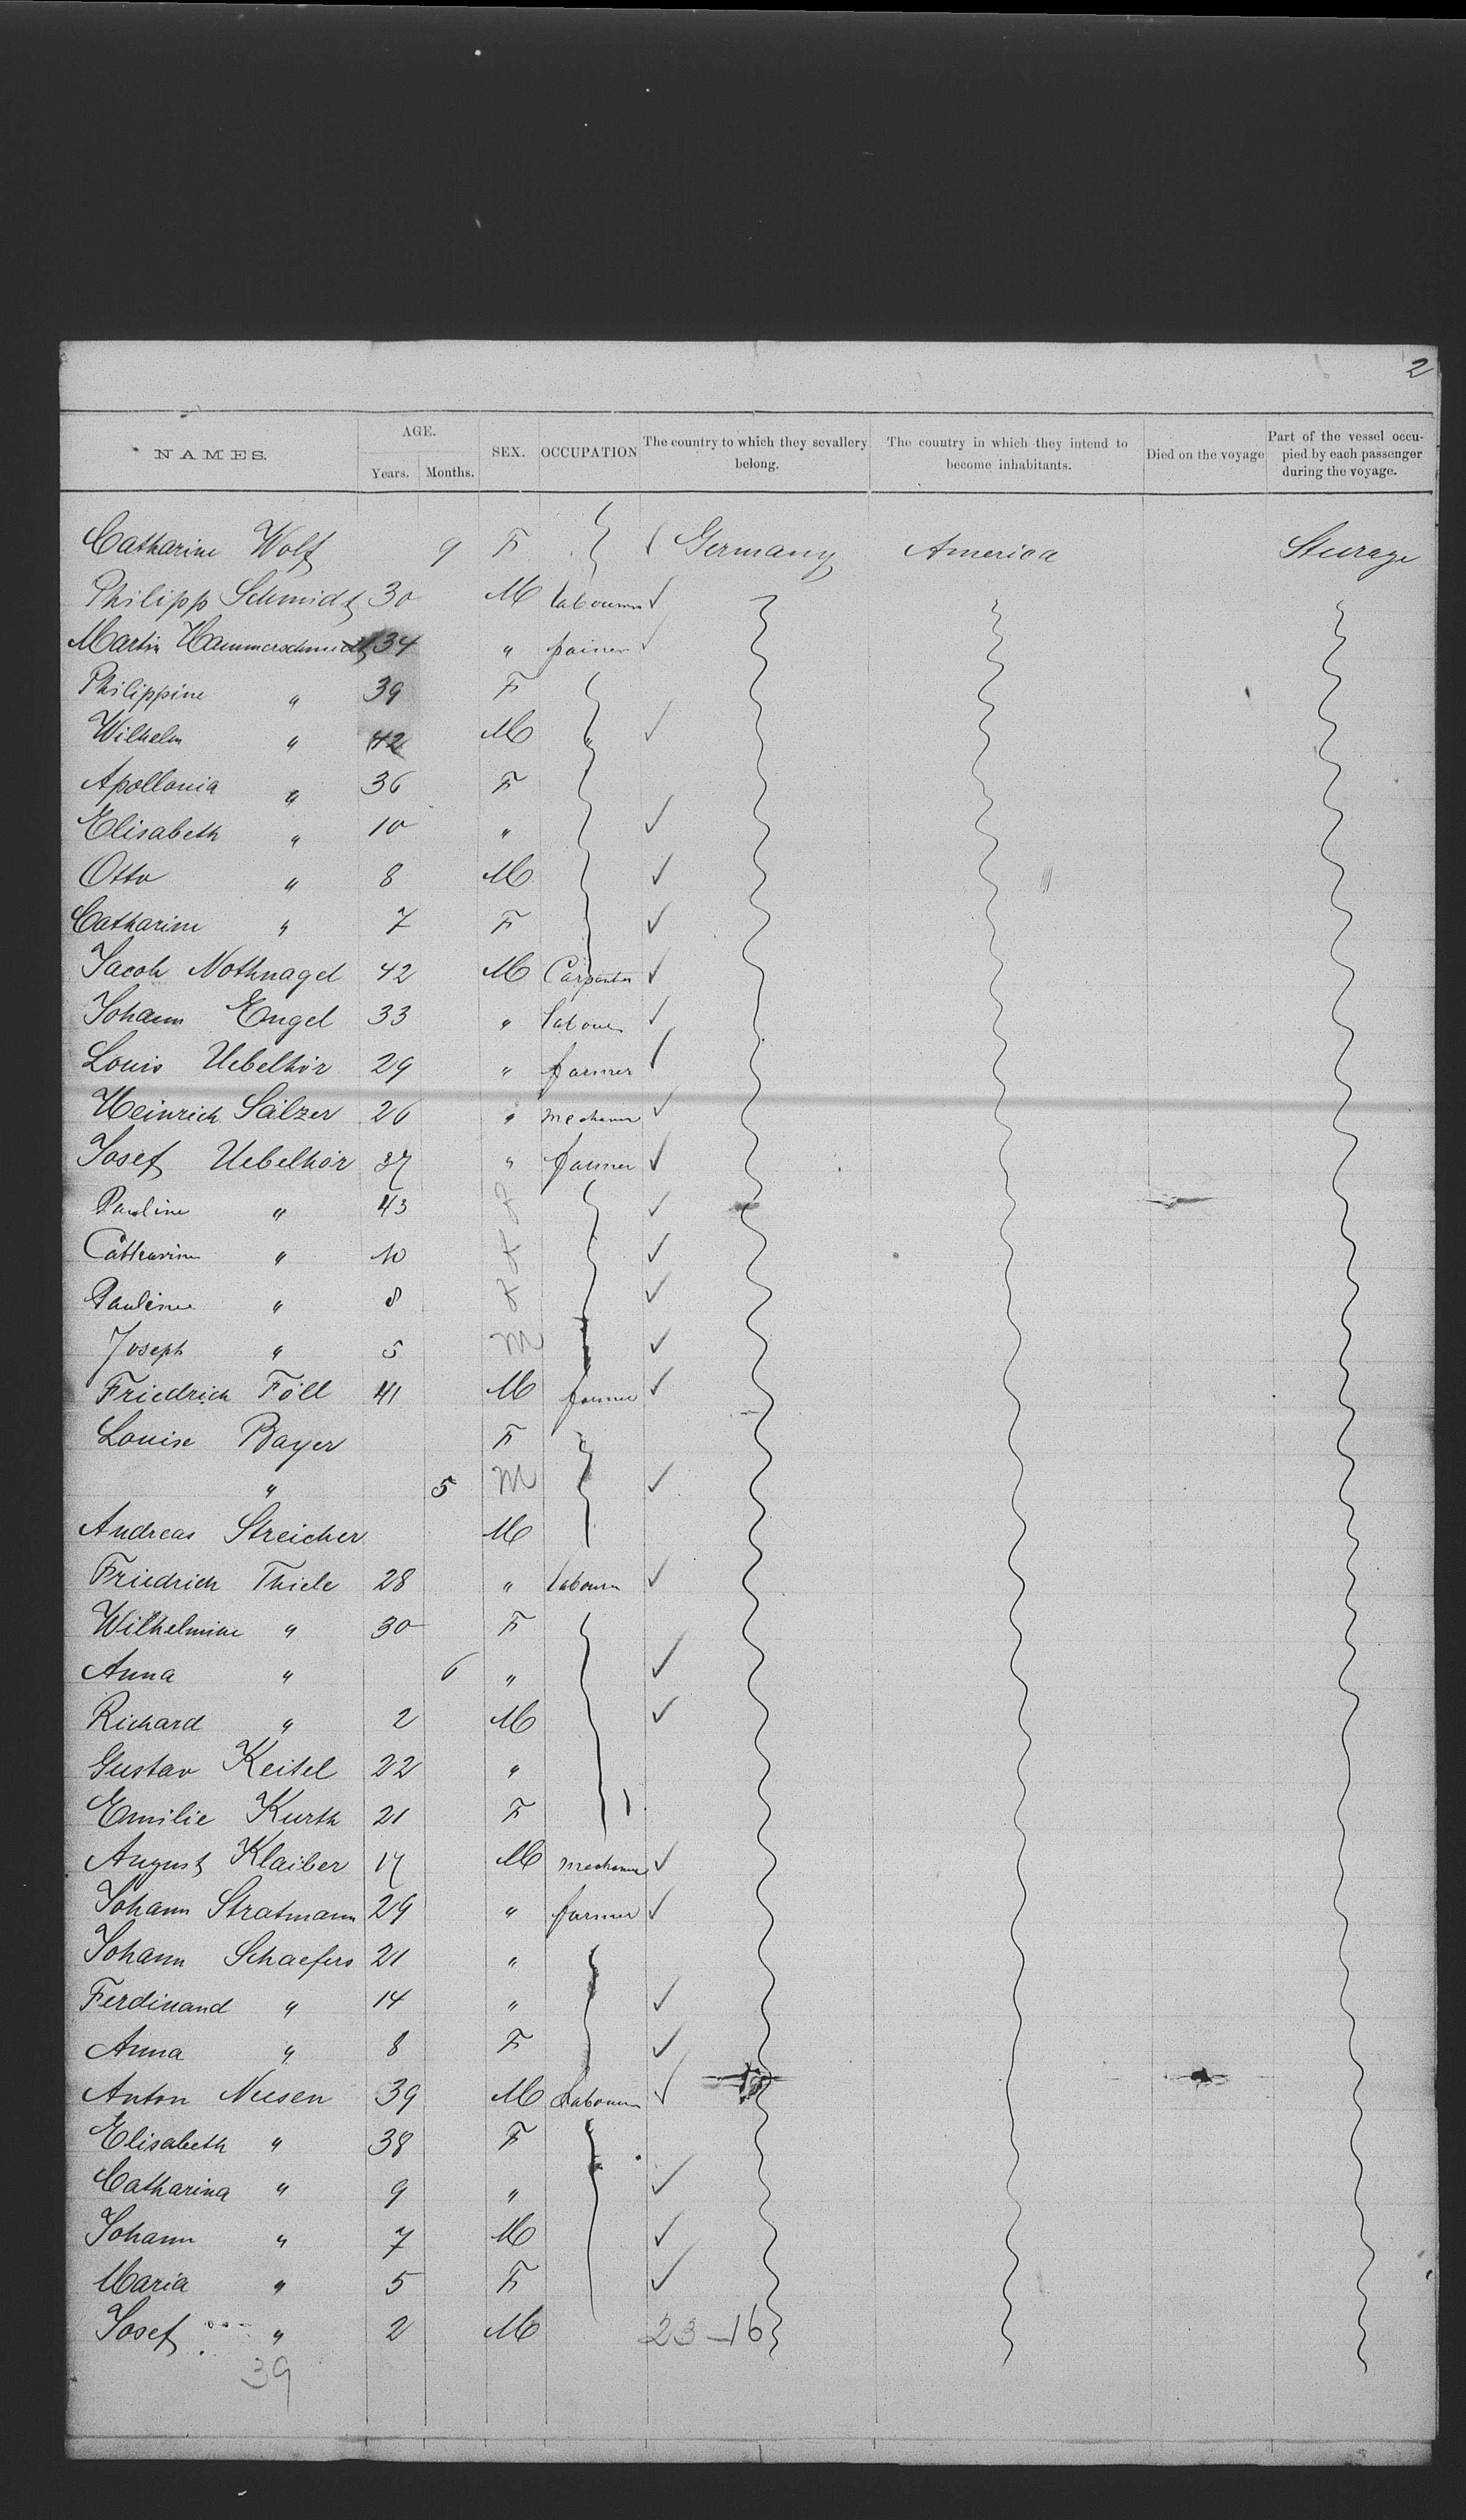 2
NAMES. AGE. SEX. OCCUPATION The country to which they sevallery belong. The country in which they intend to become inhabitants. Died on the voyage Part of the vessel occu-pied by each passenger during the voyage.
Years. Months.
Catharine Wolf 9 F Germany America Steerage
Philipp Schmidt 30 M labourer
Martin Hammerschmidt 34 "
Philippine " 39 F
Wilhelm " 42 M "
Apollonia " 36 F
Elisabeth " 10 "
Otto " 8 M
Catharine " 7 F
Jacob Nothnagel 42 M Carpenter
Johann Engel 33 " labourer
Louis Uebelhör 29 " farmer
Heinrich Sälzer 26 " mechanic
Josef Uebelhör 37 " farmer
Pauline " 43 F
Catharine " 10 F
Pauline " 8 F
Joseph " 5 M
Friedrich Föll 41 M farmer
Louise Bayer F
" 5 M
Andreas Streicher M
Friedrich Thiele 28 " labourer
Wilhelmine " 30 F
Anna " 6 "
Richard " 2 M
Gustav Keitel 22 "
Emilie Kurth 21 F
August Klaiber 17 M mechanic
Johann Stratmann 29 " farmer
Johann Schaefers 21 "
Ferdinand " 14 "
Anna " 8 F
Anton Niesen 39 M Labourer
Elisabeth " 38 F
Catharina " 9 "
Johann " 7 M
Maria " 5 F
Josef " 2 M 23-16
39